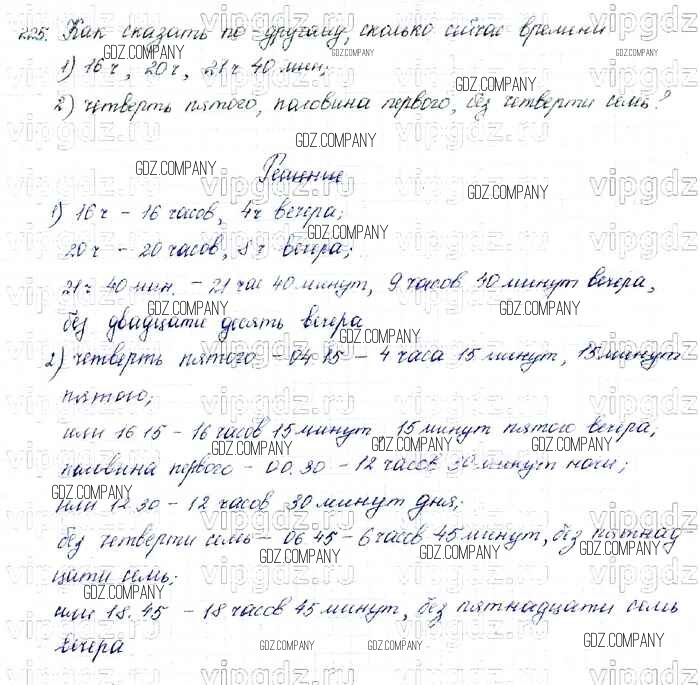 225. Как сказать по-другому, сколько сейчас времени
1) 16 ч, 20 ч, 21 ч 40 мин;
2) четверть пятого, половина первого, без четверти семь?
Решение
1) 16 ч - 16 часов, 4 ч вечера;
20 ч - 20 часов, 8 ч вечера;
21 ч 40 мин. - 21 час 40 минут, 9 часов 40 минут вечера,
без двадцати десять вечера
2) четверть пятого - 04 15 - 4 часа 15 минут, 15 минут
пятого;
или 16 15 - 16 часов 15 минут, 15 минут пятого вечера;
половина первого - 00.30 - 12 часов 30 минут ночи;
или 12 30 - 12 часов 30 минут дня;
без четверти семь - 06 45 - 6 часов 45 минут, без пятнад-
цати семь;
или 18.45 - 18 часов 45 минут, без пятнадцати семь
вечера
GDZ.COMPANY
vipgdz.ru